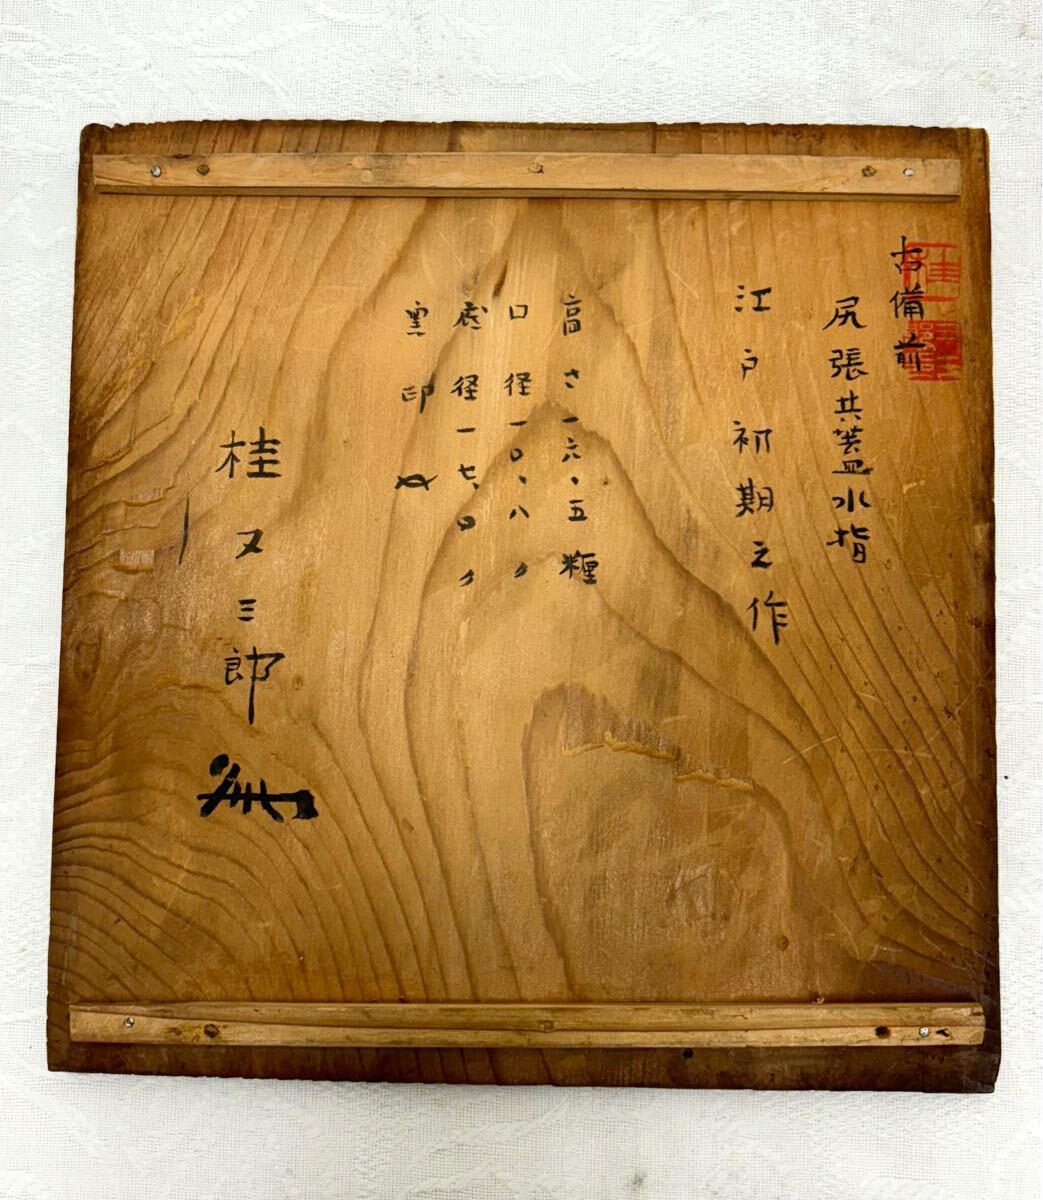 古備前
尻張共蓋水指
江戸初期之作
高さ一六、五糎
口径一〇、八〃
底径一七、〇〃
窯印
桂又三郎